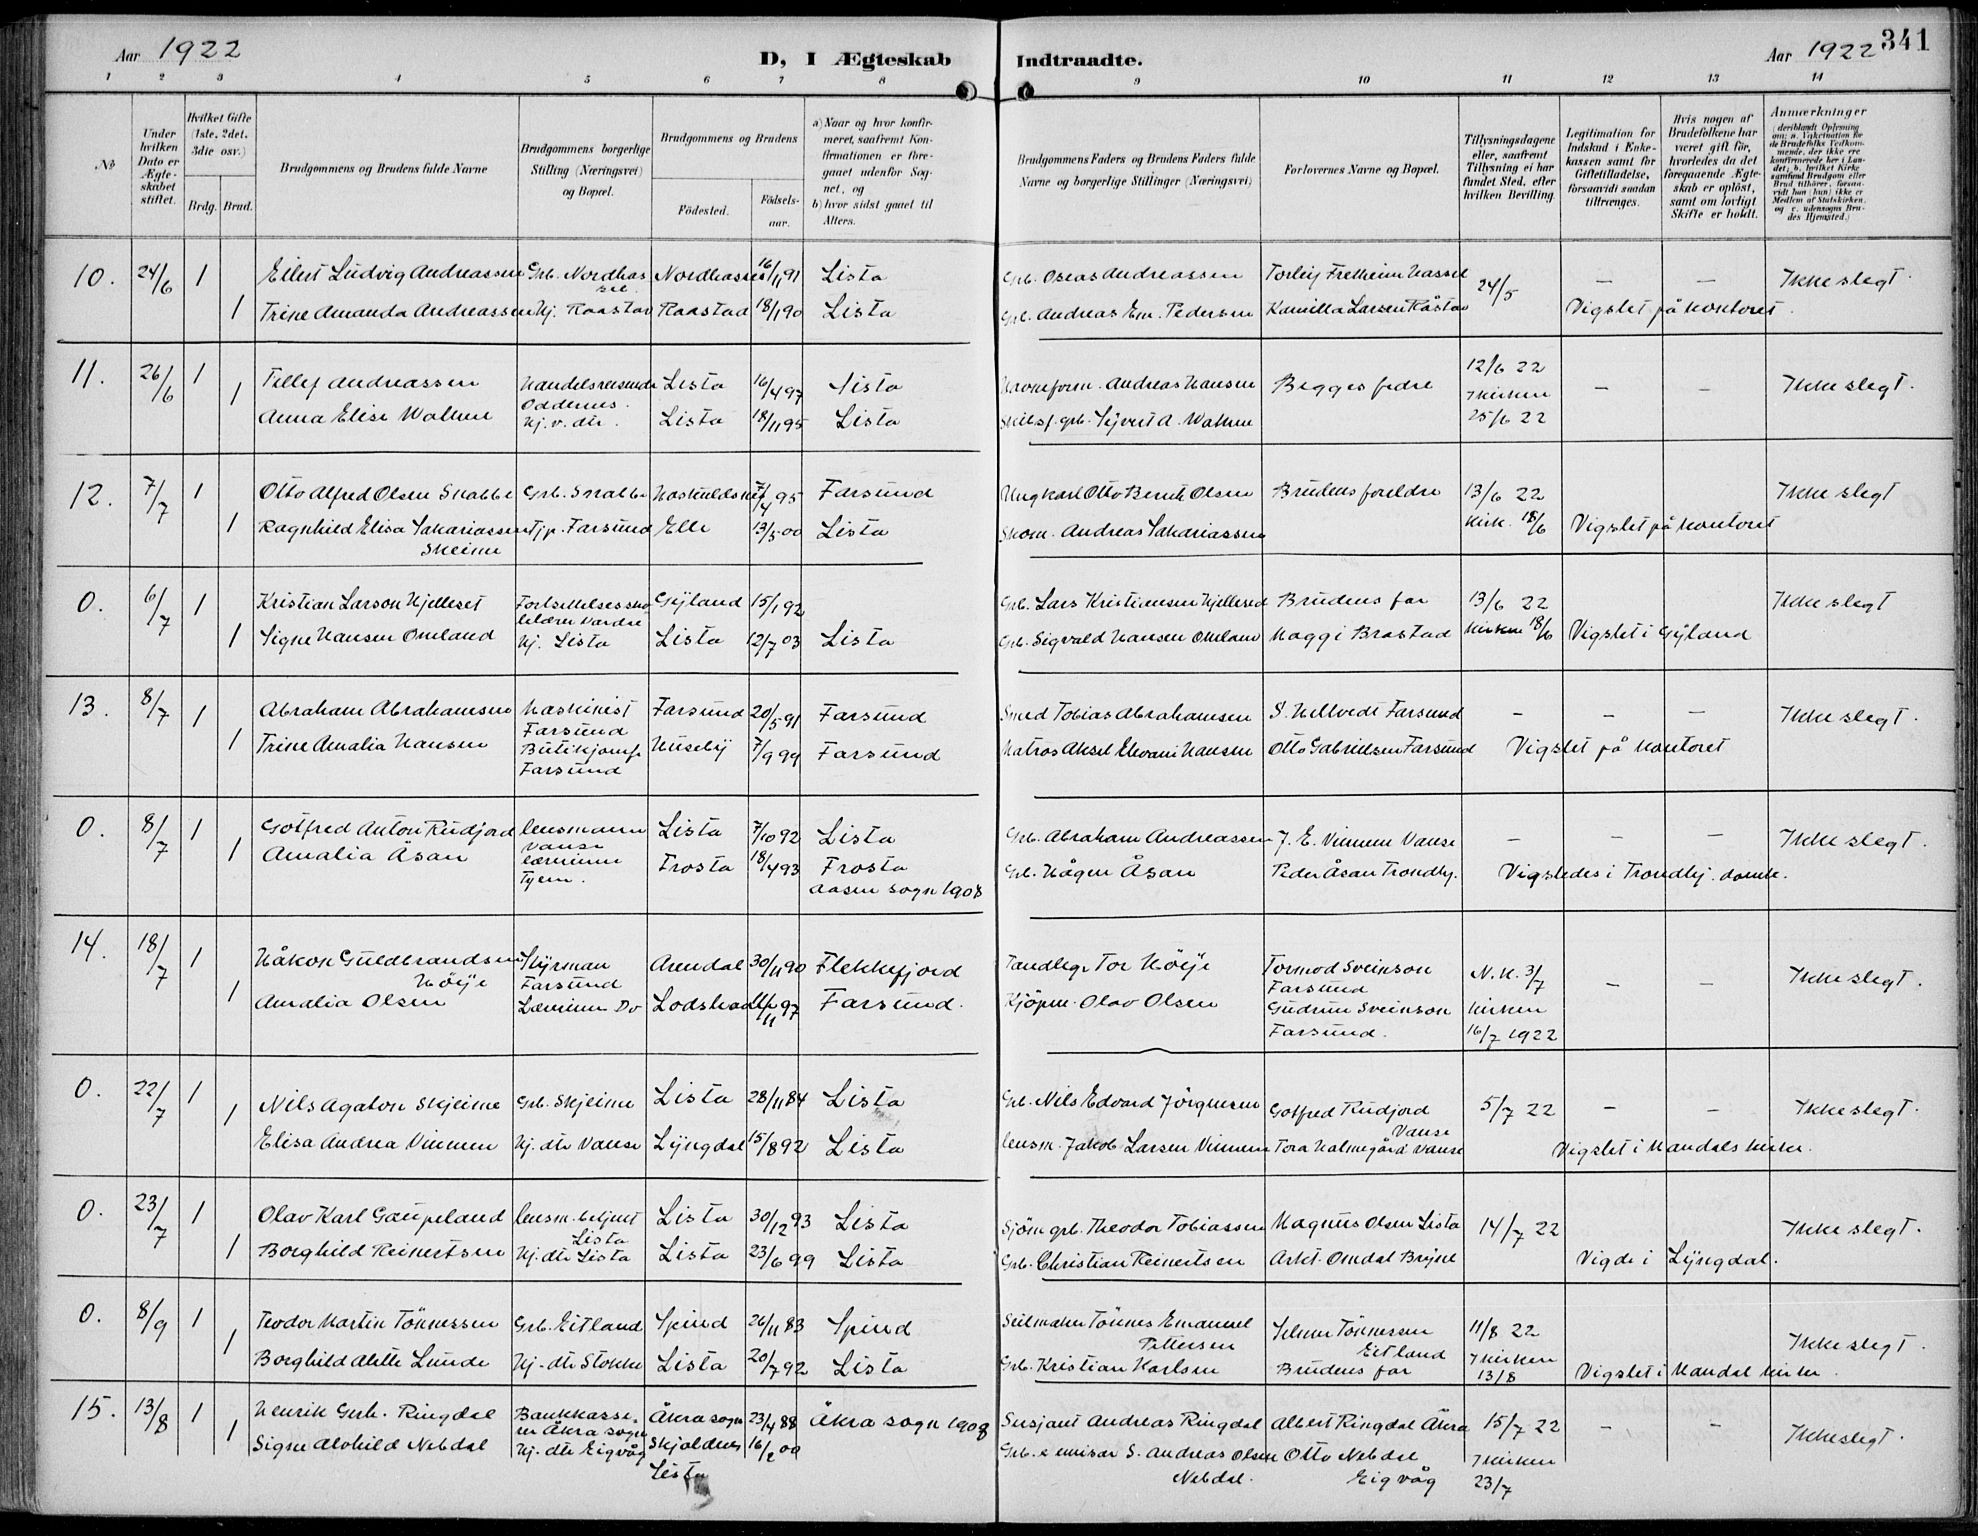 Aar 1922
D, I Ægteskab
Indtraadte.
Aar 1922 341
1 2 3 4 5 6 7 8 9 10 11 12 13 14
No
Under hvilken Dato er Ægteskabet stiftet.
Hvilket Gifte (1ste, 2det, 3die osv.)
Brdg. Brud.
Brudgommens og Brudens fulde Navne
Brudgommens borgerlige Stilling (Næringsvei) og Bopæl.
Brudgommens og Brudens
Fødested. Fødselsaar.
a) Naar og hvor konfirmeret, saafremt Konfirmationen er foregaaet udenfor Sognet, og
b) hvor sidst gaaet til Alters.
Brudgommens Faders og Brudens Faders fulde Navne og borgerlige Stillinger (Næringsvei)
Forlovernes Navne og Bopæl.
Tillysningsdagene eller, saafremt Tillysning ei har fundet Sted, efter hvilken Bevilling.
Legitimation for Indskud i Enkekassen samt for Giftetilladelse, forsaavidt saadan tiltrænges.
Hvis nogen af Brudefolkene har været gift før, hvorledes da det foregaaende Ægteskab er opløst, samt om lovligt Skifte er holdt.
Anmærkninger (deriblandt Oplysning om: a. Vakcination for de Brudefolks Vedkommende, der ikke ere konfirmerede her i Landet; b. hvilket Kirkesamfund Brudgom eller Brud tilhører, forsaavidt han (hun) ikke er Medlem af Statskirken, og c. udensogns Brudes Hjemsted.)
10. 24/6 1 Eilert Ludvig Andreassen Grb. Nordhassel Nordhassel 16/11 91 Lista Grb. Oseas Andreassen Torleif Fretheim Hassel 24/5 — — Ikke slegt.
1 Trine Amanda Andreassen Hj. Raastad Raastad 18/1 90 Lista Grb. Andreas Em. Pedersen Kamilla Larsen Råstad Vigslet på kontoret.
11. 26/6 1 Tellef Andreassen Handelsreisende Oddernes. Lista 16/4 97 Lista Andreas Hansen Begges fedre 12/6 22 — — Ikke slegt.
1 Anna Elise Walme Hj. v. dtr. Lista 18/11 95 Lista Skibsf. grb. Sijvert A. Walme I kirken 25/6 22
12. 7/7 1 Otto Alfred Olsen Snabbe Grb. Snabbe 7/4 95 Farsund Ungkarl Otto Bernt Olsen Brudens foreldre 13/6 22 Ikke slegt
1 Ragnhild Elisa Sakariassen Skeime Tjp. Farsund Elle 13/5 00 Lista Skom. Andreas Sakariassen Kirk. 18/6 Vigslet på kontoret
0. 6/7 1 Kristian Larson Hjelleset Fortsettelsesskolelærer Gyland 15/1 92 Grb. Lars Kristiansen Hjelleset Brudens far 13/6 22 Ikke slegt
1 Signe Hansen Omland Hj. Lista Lista 12/7 03 Lista Grb. Sigvald Hansen Omland Maggi Brastad Kirken 18/6 Vigslet i Gyland
13. 8/7 1 Abraham Abrahamsen Maskinist Farsund Farsund 20/5 91 Farsund Smed Tobias Abrahamsen S. Helvedt Farsund — — — Ikke slegt.
1 Trine Amalia Hansen Butikjomf. Farsund Huseby 7/9 99 Farsund Matros Aksel Hansen Otto Gabrielsen Farsund Vigslet på kontoret
0. 8/7 1 Gotfred Anton Rudjord lensmann Vanse Lista 7/10 92 Lista Grb. Abraham Andreassen J. E. Vinnem Vanse — — — Ikke slegt.
1 Amalia Åsan lærerinne Frosta 18/4 93 Frosta Aasen sogn 1908 Grb. Hågen Åsan Peder Åsan Trondhj. Vigsledes i Trondhj. domk.
14. 18/7 1 Håkon Guldbrandsen Höije Styrman Farsund Arendal 30/11 90 Flekkefjord Tandlege Tor Höije Tormod Sveinson Farsund N. K. 3/7 — — Ikke slegt.
1 Amalia Olsen Lærerinne Do Lodshavn 11/11 97 Farsund. Kjöpm. Olav Olsen Gudrun Sveinson Farsund. Kirken 16/7 1922
0. 22/7 1 Nils Agaton Skjeime Grb. Skjeime Lista 28/11 84 Lista Grb. Nils Edvard Jörgensen Gotfred Rudjord Vanse 5/7 22 — — Ikke slegt.
1 Elisa Andrea Vinnem Hj. dtr Vanse Lyngdal 15/8 92 Lista lensm. Jakob Larsen Vinnem Tora Halmegård Vanse Vigslet i Mandals kirke.
0. 23/7 1 Olav Karl Gaupeland lensm. betjent Lista Lista 30/12 93 Lista Sjöm. grb. Theodor Tobiassen Magnus Olsen Lista 14/7 22 Ikke slegt.
1 Borghild Reinertsen Hj. dtr Lista Lista 23/6 99 Lista Grb. Christian Reinertsen Arkt. Omdal Bryne Vigde i Lyngdal.
0. 8/9 1 Teodor Martin Tönnessen Grb. Eitland Spind 26/11 83 Spind Seilmaker Tönnes Emanuel Pettersen Tönnessen Eitland 11/8 22 Ikke slegt.
1 Borghild Alette Lunde Hj. dtr Stokke Lista 20/7 92 Lista Grb. Kristian Karlsen Brudens far I kirken 13/8 Vigslet i Mandal kirke
15. 13/8 1 Henrik Gerh. Ringdal Bankkasserer Åkra sogn Åkra sogn 23/4 88 Åkra sogn 1908 Sersjant Andreas Ringdal Albert Ringdal Åkra 15/7 22 — — Ikke slegt.
1 Signe Alvhild Nebdal Hj. dtr Eigvåg Skjoldnes Lista 16/2 00 Grb. & emisær S. Andreas Olsen Nebdal. Otto Nebdal Eigvåg I kirken 23/7